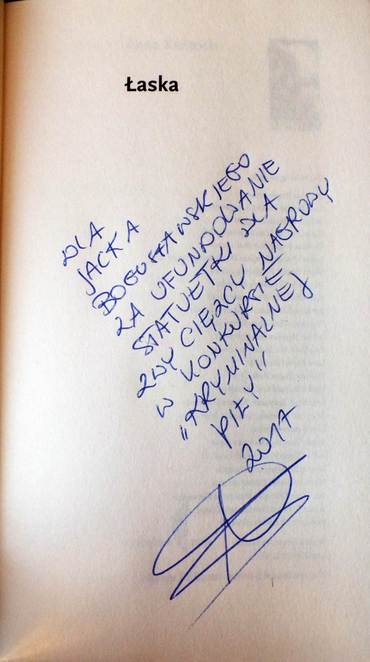 Łaska
DLA
JACKA
BOGUSŁAWSKIEGO
ZA UFUNDOWANIE
STATUETKI DLA
ZWYCIĘZCY NAGRODY
W KONKURSIE
„KRYMINALNEJ
PIŁY”
2017